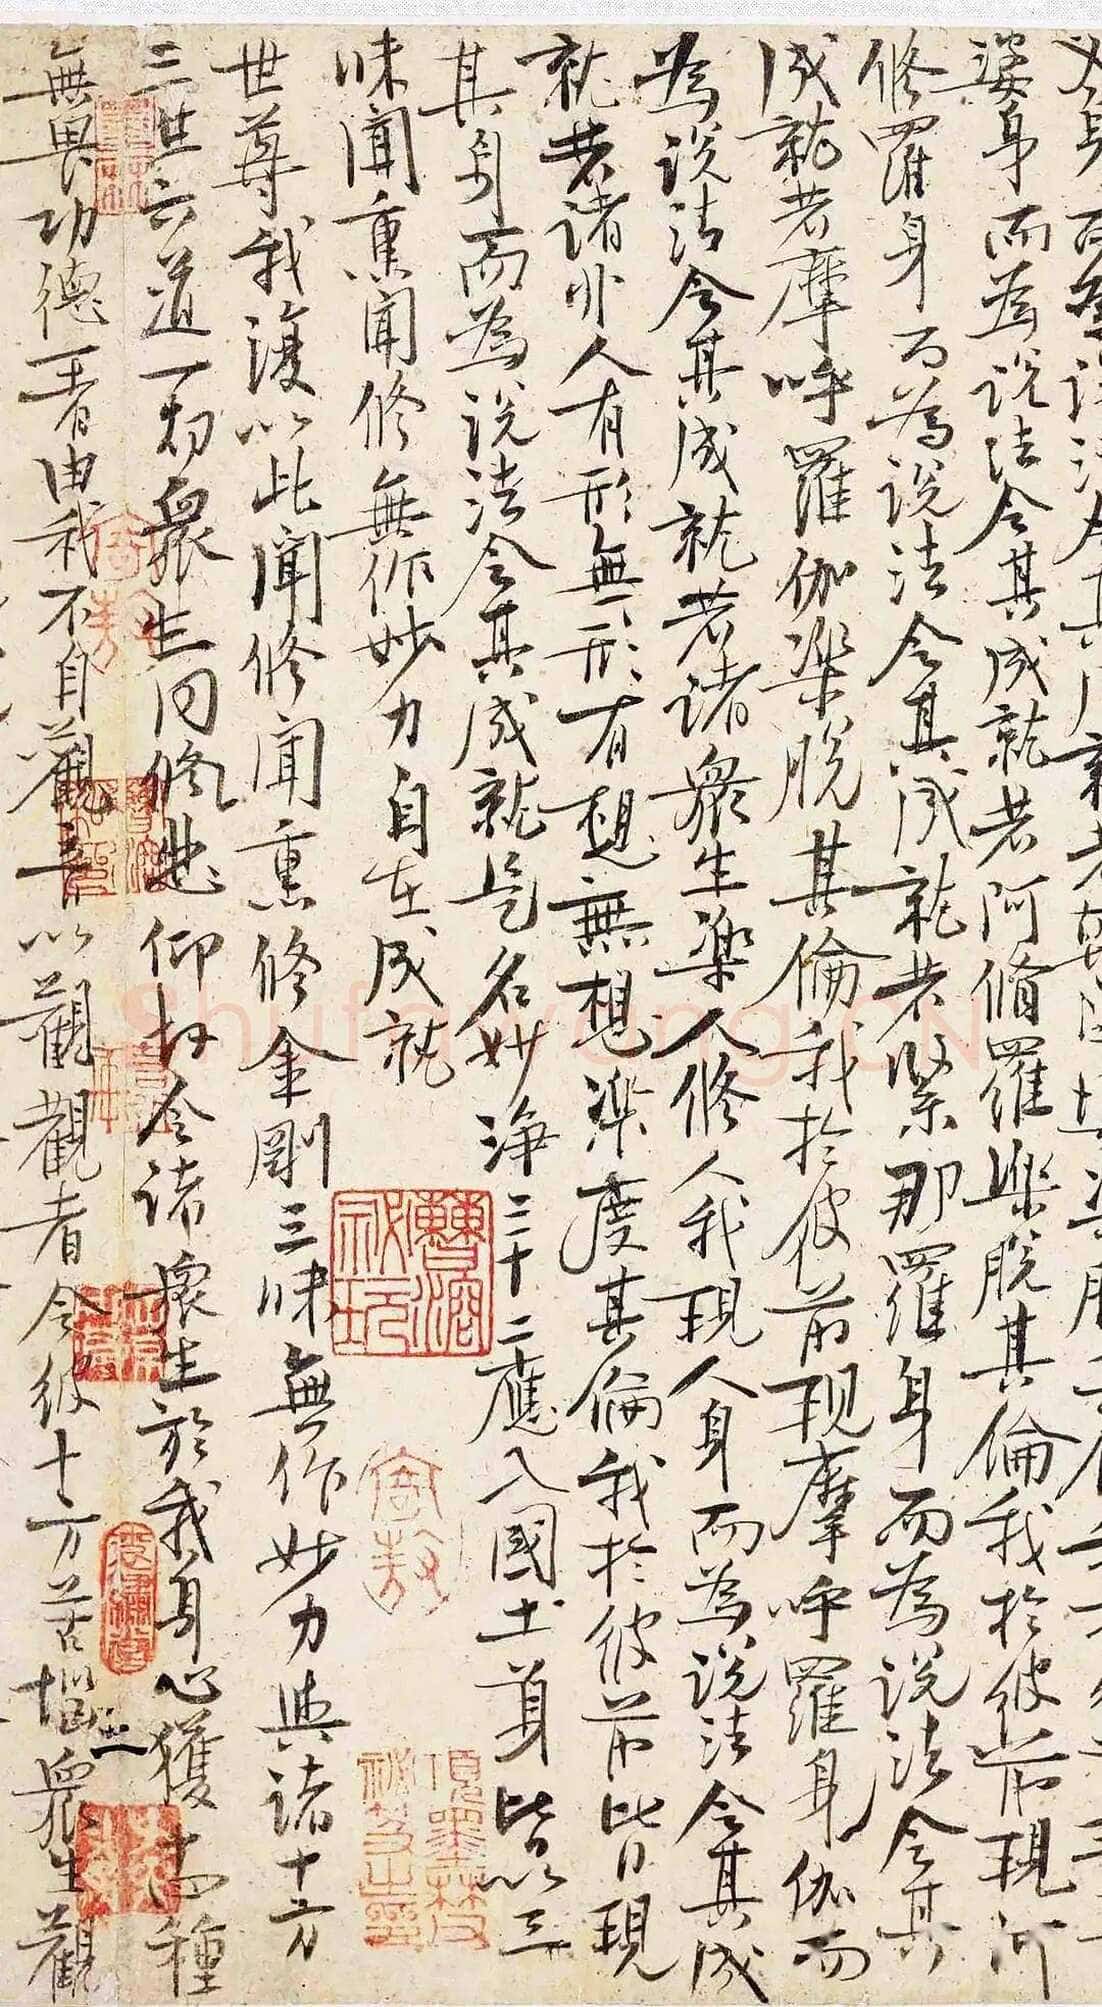 婆身而為說法令其成就若阿脩羅樂脫其倫我於彼前現阿
修羅身而為說法令其成就若緊那羅身而為說法令其
成就若摩呼羅伽樂脫其倫我於彼前現摩呼羅身伽而
為說法令其成就若諸眾生樂人修人我現人身而為說法令其成
就若諸非人有形無形有想無想樂度其倫我於彼前皆現
其身而為說法令其成就是名妙淨三十二應入國土身皆以三
昧聞熏聞修無作妙力自在成就
世尊我復以此聞修聞熏修金剛三昧無作妙力與諸十方
三世六道一切眾生同修悲仰故令諸眾生於我身心獲十四種
無畏功德一者由我不自觀音以觀觀者令彼十方苦惱眾生觀
曹溶秘玩
項墨林父秘笈之印